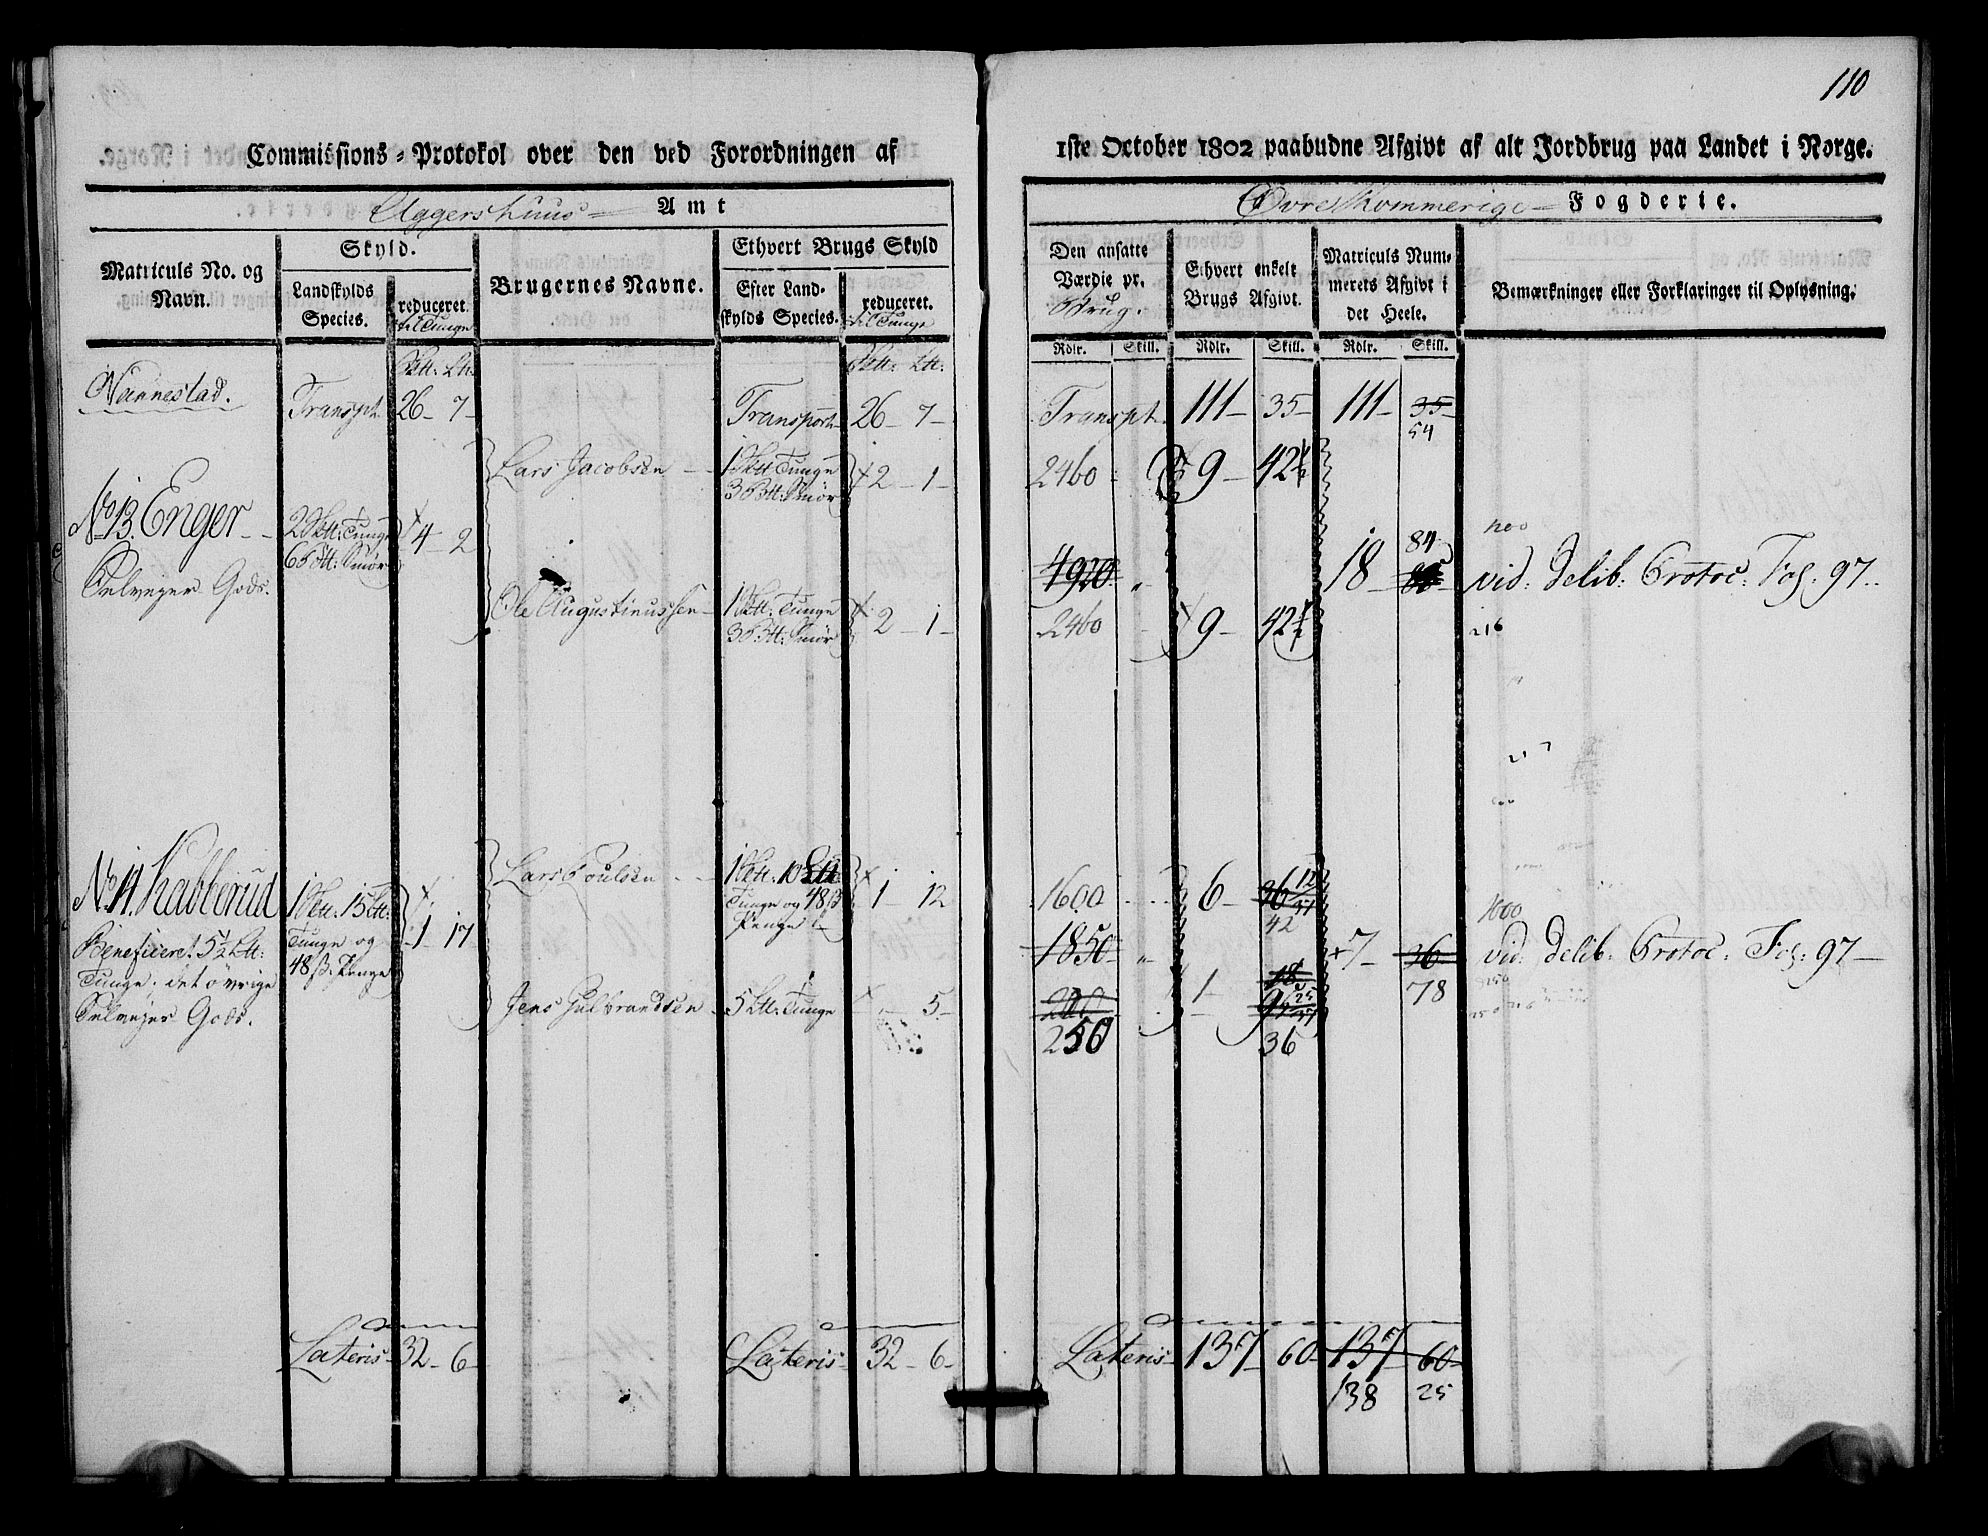 110
Commissions-Protokol over den ved Forordningen af
1ste October 1802 paabudne Afgivt af alt Jordbrug paa Landet i Norge.
Aggershuus Amt
Øvre Rommerige Fogderie.
Matriculs No. og Navn.
Skyld.
Landskylds Species.
reduceret til Tunge
Brugernes Navne.
Ethvert Brugs Skyld
Efter Landskylds Species.
reduceret. til Tunge
Den ansatte Værdie pr. Brug.
Ethvert enkelt Brugs Afgivt.
Matriculs Nummerets Afgivt i det Heele.
Bemærkninger eller Forklaringer til Oplysning.
Rdlr. Skill. Rdlr. Skill. Rdlr. Skill.
Nannestad.
Transpt. 26 - 7 -
Transport 26 - 7 -
Transpt. 111 - 35 - 111 - 35
54
Lars Jacobsen - 1 Sktt Tunge 3 Btt: Smör 2 - 1 -
2460 9 - 42½
No 13. Enger - 2 Sktt: Tunge 6 Btt: Smör 4 - 2
Selveyer Gods.
4920 18 84
vid: Delib: Protoc: Fol: 97.
Ole Augustinussen - 1 Sktt: Tunge 3 Btt: Smör 2 - 1 -
2460 9 - 42½
216
No 14. Kabberud 1 Sktt: 15 Ltt: Tunge og 48 ß. Penge 1 17
Beneficeret 5½ Ltt:
Tunge. det øvrige
Selvejer Gods.
Lars Poulsen - 1 Sktt: 10 Ltt Tunge og 48 ß Penge 1 12
1600 6 - 36
42
1850 7 - 36
78
1600
vid: Delib: Protoc: Fol: 97 -
Jens Gulbrandsen - 5 Ltt: Tunge - 5 -
250 1 - 36
Lateris 32 - 6 -
Lateris 32 - 6 -
Lateris 137 - 60 - 137 - 60
138 25